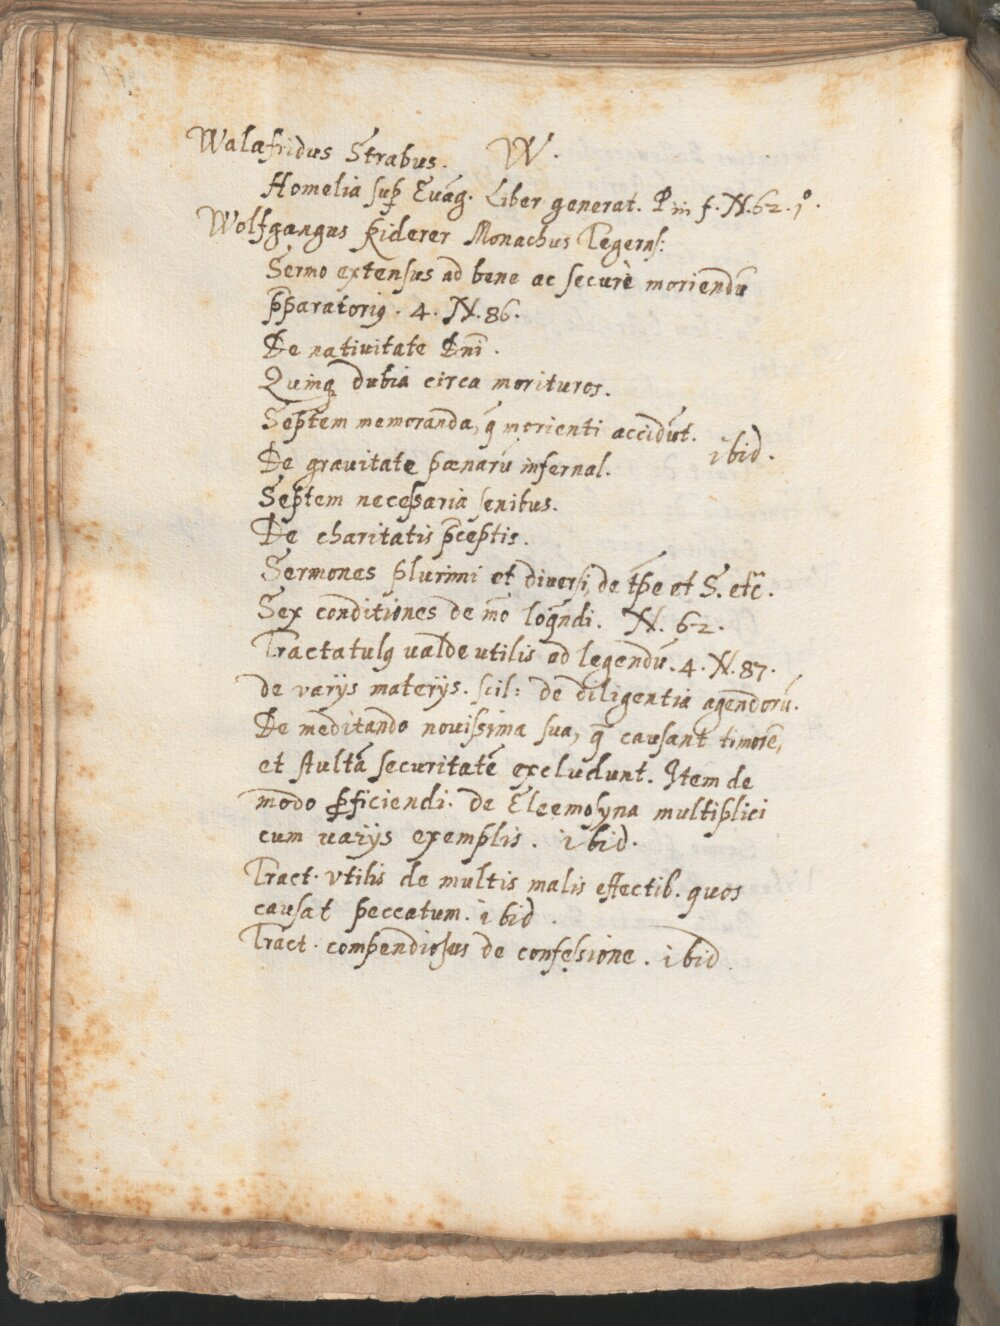 W.
Walafridus Strabus.
Homelia sup̱ Evāg. Liber generat. P in f. N. 62. 1°.
Wolfgangus Kiderer Monachus Tegerns:
Sermo extensus ad bene ac securè moriendū
p̄paratoriꝰ. 4. N. 86.
De natiuitate Dn̄i.
Quinqꝫ dubia circa morituros.
Septem memoranda, q̄ morienti accidūt.
ibid.
De grauitate pœnarū infernal.
Septem necessaria senibus.
De charitatis p̄ceptis.
Sermones plurimi et diuersi, de tp̄e et S. etc̄.
Sex conditiones de mō loq̄ndi. N. 62.
Tractatulꝰ ualde utilis ad legendū. 4. N. 87.
de varijs materijs. scil: de diligentia agendorū.
De meditando nouissima sua, q̄ causant timorē,
et stultā securitatē excludunt. Item de
modo ꝓficiendi. de Eleemosyna multiplici
cum uarijs exemplis. ibid.
Tract. vtilis de multis malis effectib. quos
causat peccatum. ibid.
Tract. compendiosus de confessione. ibid.